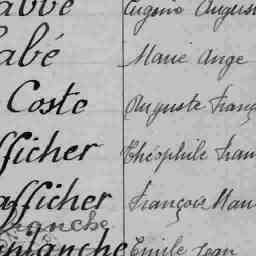 abbé Eugène August
abé Marie Ange
Coste Auguste Franç
fficher Théophile Fran
afficher François Mau
franche
anlanche Emile Jean